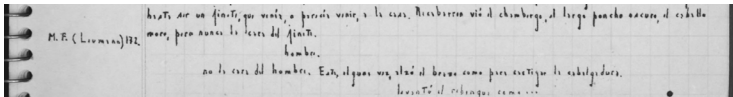 hasta ser un jinete, que venía, o parecía venir, a la casa. Recabarren vió el chambergo, el largo poncho oscuro, el caballo
M.F. (Leumann) 172. moro, pero nunca la cara del jinete.
hombre.
no la cara del hombre. Este, alguna vez, alzó el brazo como para castigar la cabalgadura.
levantó el rebenque como...